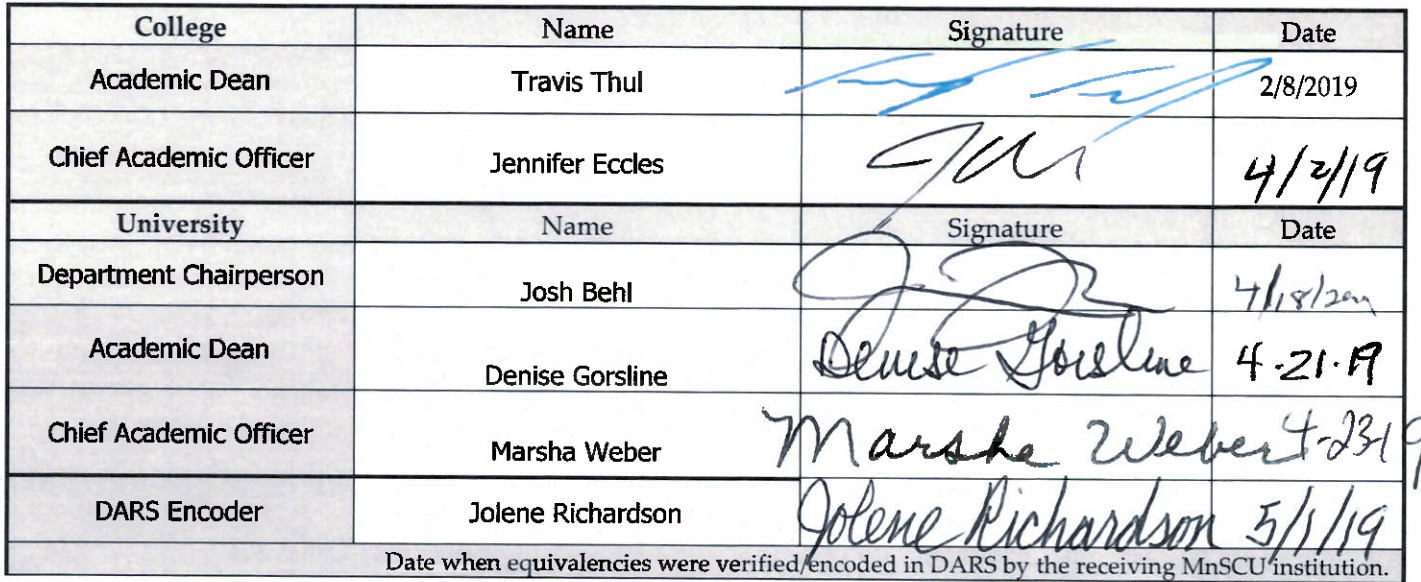 College Name Signature Date
Academic Dean Travis Thul 2/8/2019
Chief Academic Officer Jennifer Eccles 4/2/19
University Name Signature Date
Department Chairperson Josh Behl 4/18/2019
Academic Dean Denise Gorsline Denise Gorsline 4-21-19
Chief Academic Officer Marsha Weber Marsha Weber 4-23-19
DARS Encoder Jolene Richardson Jolene Richardson 5/1/19
Date when equivalencies were verified/encoded in DARS by the receiving MnSCU institution.